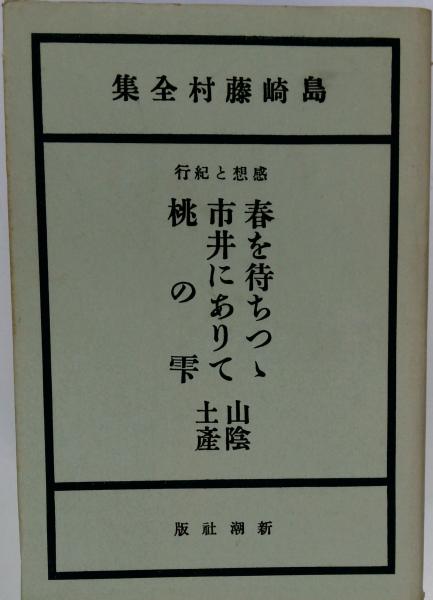 島崎藤村全集
感想と紀行
春を待ちつゝ
市井にありて
桃の雫
山陰
土產
新潮社版